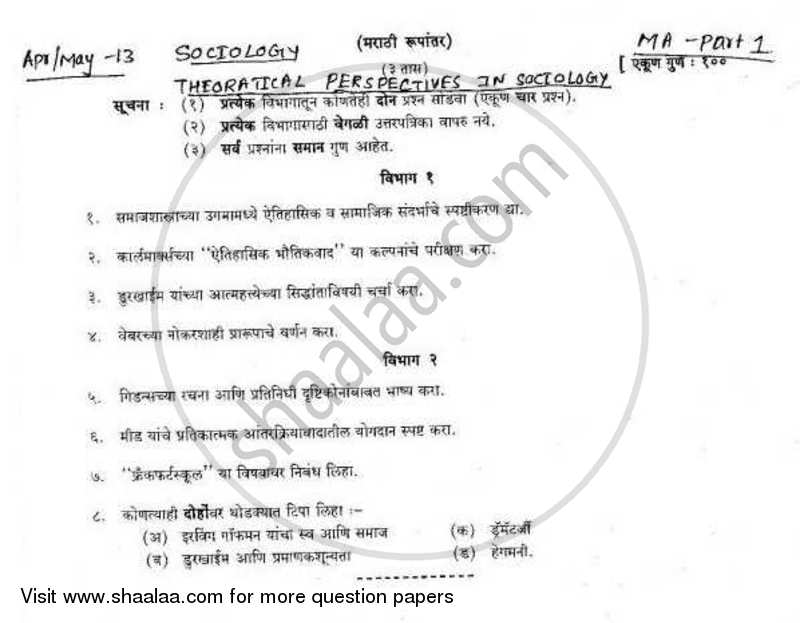 Apr/May -13 SOCIOLOGY (मराठी रूपांतर) MA - Part 1
(३ तास) [ एकूण गुण : १००
THEORATICAL PERSPECTIVES IN SOCIOLOGY
सूचना : (१) प्रत्येक विभागातून कोणतेही दोन प्रश्न सोडवा (एकूण चार प्रश्न).
(२) प्रत्येक विभागासाठी वेगळी उत्तरपत्रिका वापरु नये.
(३) सर्व प्रश्नांना समान गुण आहेत.
विभाग १
१. समाजशास्त्राच्या उगमामध्ये ऐतिहासिक व सामाजिक संदर्भाचे स्पष्टीकरण द्या.
२. कार्लमार्क्सच्या "ऐतिहासिक भौतिकवाद" या कल्पनांचे परीक्षण करा.
३. डुरखाईम यांच्या आत्महत्येच्या सिद्धांताविषयी चर्चा करा.
४. वेबरच्या नोकरशाही प्रारूपाचे वर्णन करा.
विभाग २
५. गिडन्सच्या रचना आणि प्रतिनिधी दृष्टिकोनांबाबत भाष्य करा.
६. मीड यांचे प्रतिकात्मक आंतरक्रियावादातील योगदान स्पष्ट करा.
७. "फ्रँकफर्टस्कूल" या विषयावर निबंध लिहा.
८. कोणत्याही दोहोंवर थोडक्यात टिपा लिहा :-
(अ) इरविंग गॉफमन यांचा स्व आणि समाज (क) ड्रॅमॅटर्जी
(ब) डुरखाईम आणि प्रमाणकशून्यता (ड) हेगमनी.
shaalaa.com
Visit www.shaalaa.com for more question papers